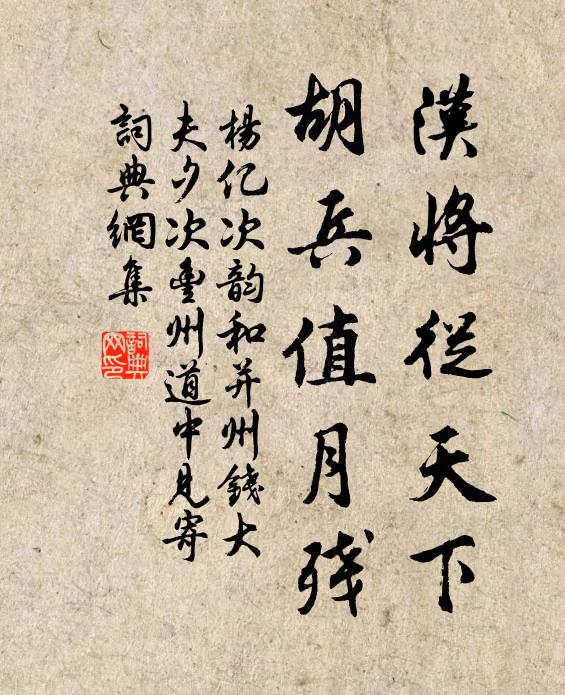 漢將從天下
胡兵值月残
楊亿次韵和并州錢大
夫夕次豊州道中見寄
詞典網集
詞典网印